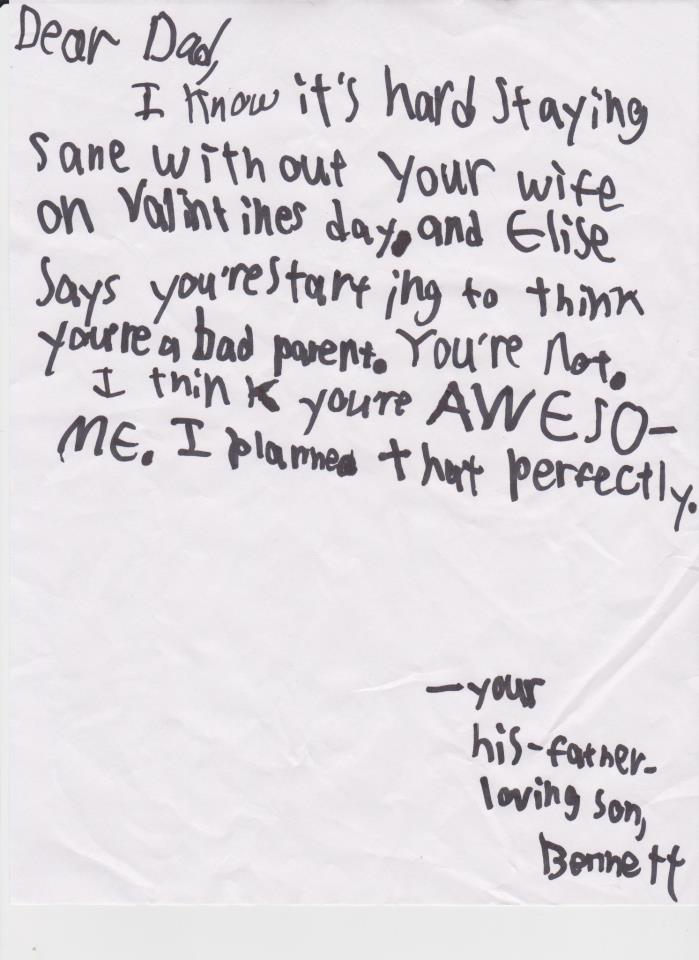 Dear Dad,
I know it's hard staying
sane without your wife
on Valintines day, and Elise
says you're starting to think
you're a bad parent. You're not.
I think you're AWESO-
ME. I planned that perfectly.
—your
his-father-
loving son,
Bennett